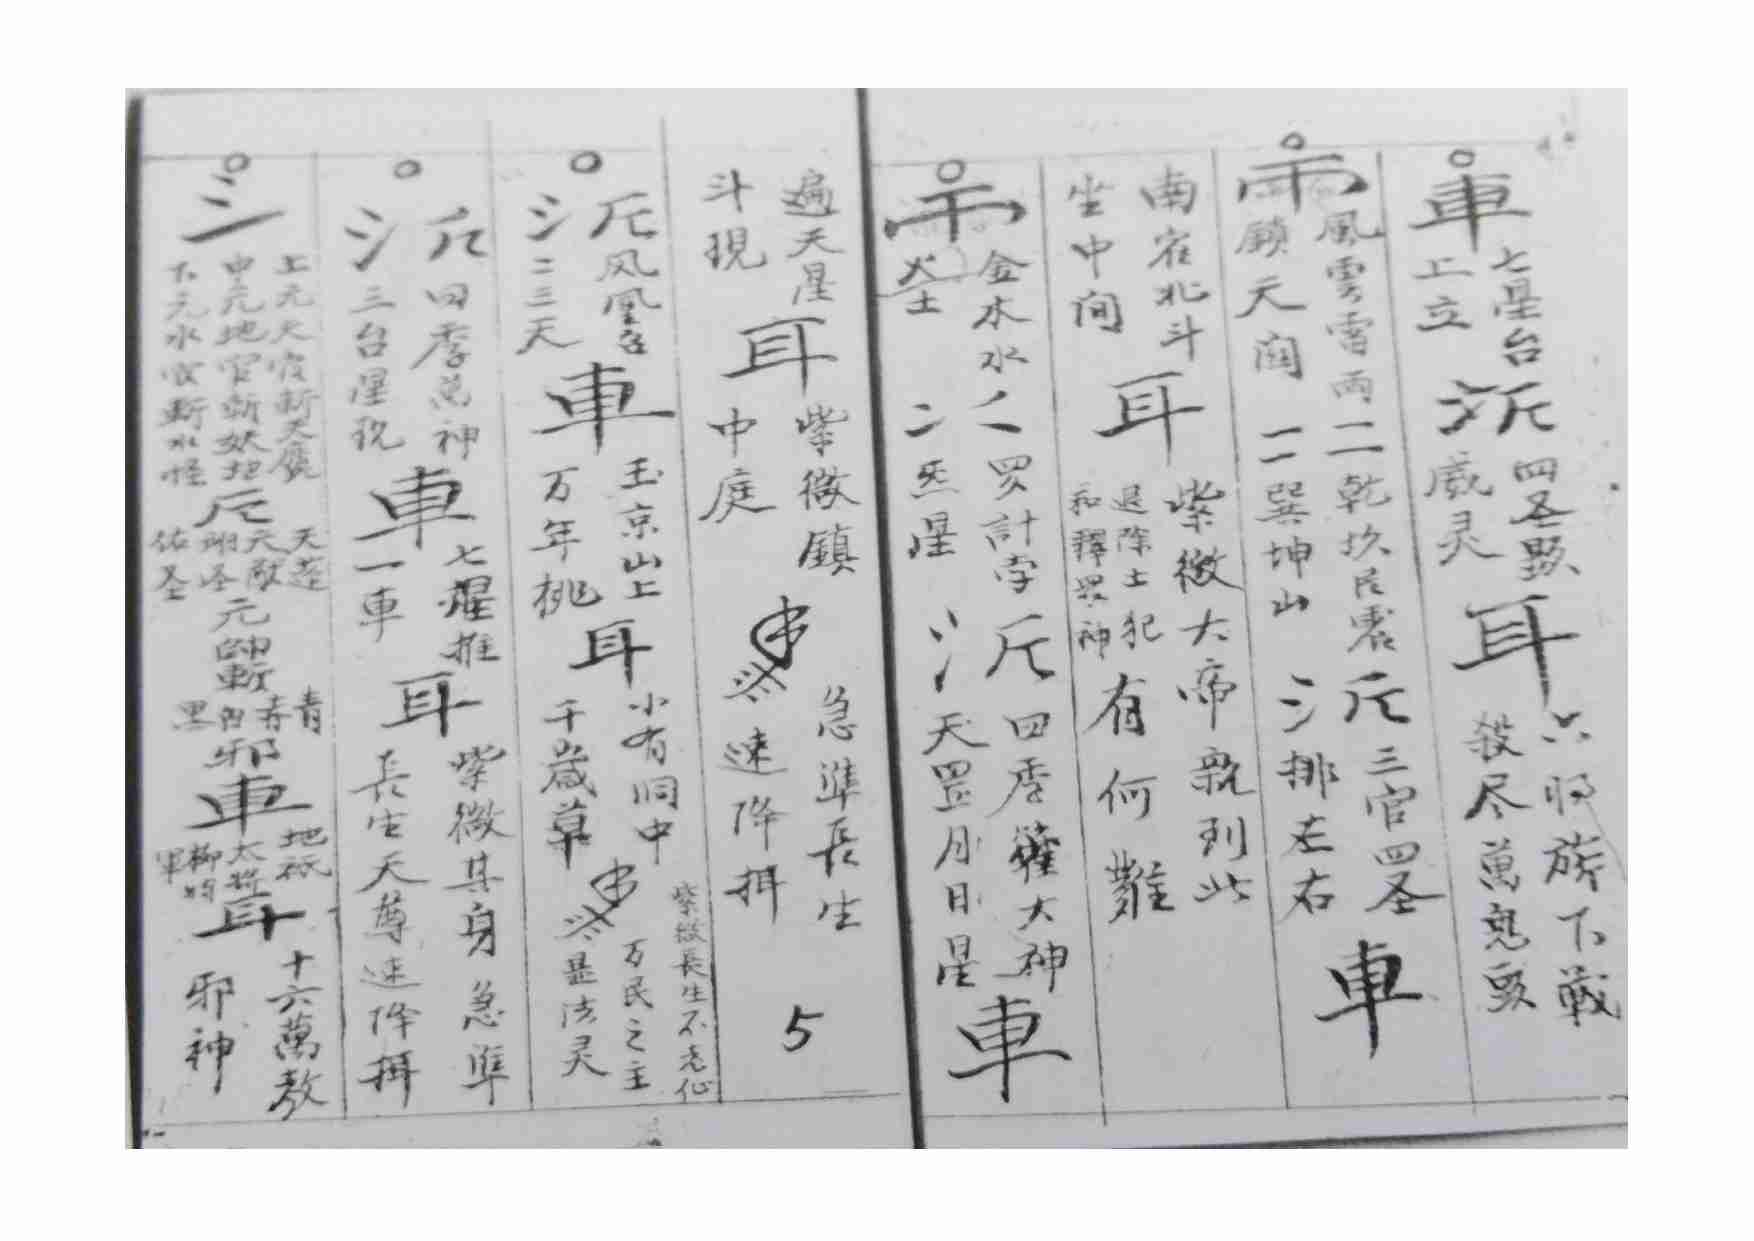 車
七星台
上立
四圣顯
威灵
耳
六將旅下戰
殺尽萬鬼
風雲雷雨
鎖天
二
一一
乾坎艮震
巽坤山
三官四圣
排左右
車
南宿北斗
坐中间
耳
紫微大帝親到此
退除土犯
和釋眾神
有何難
金水水
火土
罗計孛
炁星
四季大神
天罡月日星
車
遍天星
斗現
耳
紫微鎮
中庭
急準長生
速降
5
二三天
車
玉京山上
万年桃
耳
小有洞中
千歲草
紫微長生不老仙
万民之主
法灵
四季萬神
三台星
車
七星推
一車
耳
紫微其身急準
長生天尊速降
上元天官斬天
中元地官斬妖
下元水官斬水怪
天蓬
天猷
翊圣
佑圣
元帥斬
青
赤
白
黑
邪
車
地祇
大將
軍
耳
十六萬
邪神